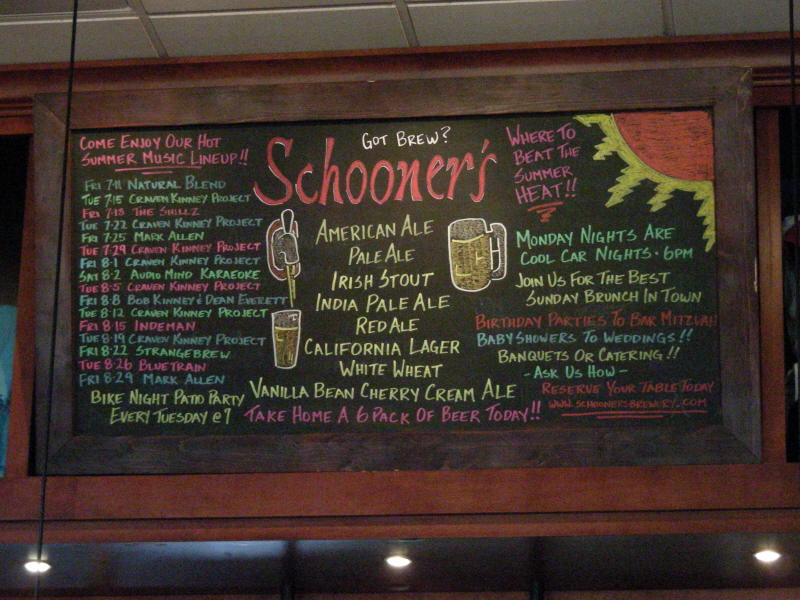 Come Enjoy Our Hot
Summer Music Lineup!!
Fri 7-11 Natural Blend
Tue 7-15 Craven Kinney Project
Fri 7-18 The Shillz
Tue 7-22 Craven Kinney Project
Fri 7-25 Mark Allen
Tue 7-29 Craven Kinney Project
Fri 8-1 Craven Kinney Project
Sat 8-2 Audio Mind Karaoke
Tue 8-5 Craven Kinney Project
Fri 8-8 Bob Kinney & Dean Everett
Tue 8-12 Craven Kinney Project
Fri 8-15 Indeman
Tue 8-19 Craven Kinney Project
Fri 8-22 Strangebrew
Tue 8-26 Bluetrain
Fri 8-29 Mark Allen
Bike Night Patio Party
Every Tuesday @ 7
Got Brew?
Schooner's
American Ale
Pale Ale
Irish Stout
India Pale Ale
Red Ale
California Lager
White Wheat
Vanilla Bean Cherry Cream Ale
Take Home A 6 Pack Of Beer Today!!
Where To
Beat The
Summer
Heat!!
Monday Nights Are
Cool Car Nights · 6pm
Join Us For The Best
Sunday Brunch In Town
Birthday Parties To Bar Mitzvah
Baby Showers To Weddings!!
Banquets Or Catering!!
- Ask Us How -
Reserve Your Table Today
www.schoonersbrewery.com